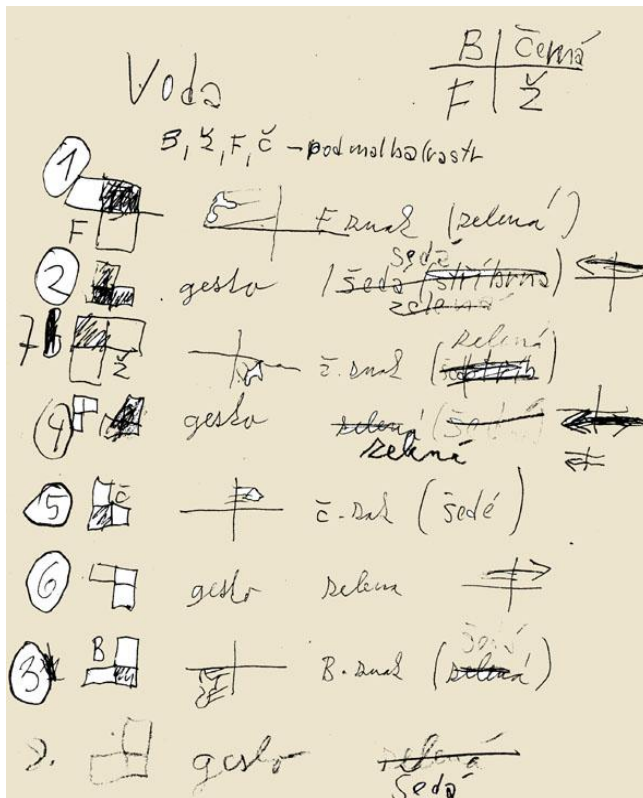 Voda
B | černá
F | Ž
B, Ž, F, č - podmalba
1 F F znak (zelená)
2 gesto šedá (šedá (stříbrná) zelená
7 Ž ž. znak zelená
4 gesto zelená (šedá)
zelená
5 č č. znak (šedé)
6 gesto zelena
3 B B. znak (šedá zelená)
gesto zelená
šedá